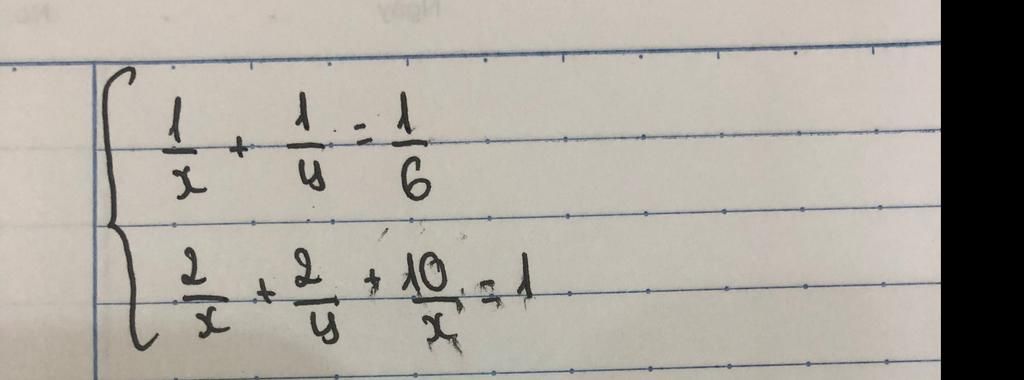 1/x + 1/y = 1/6
2/x + 2/y + 10/x = 1